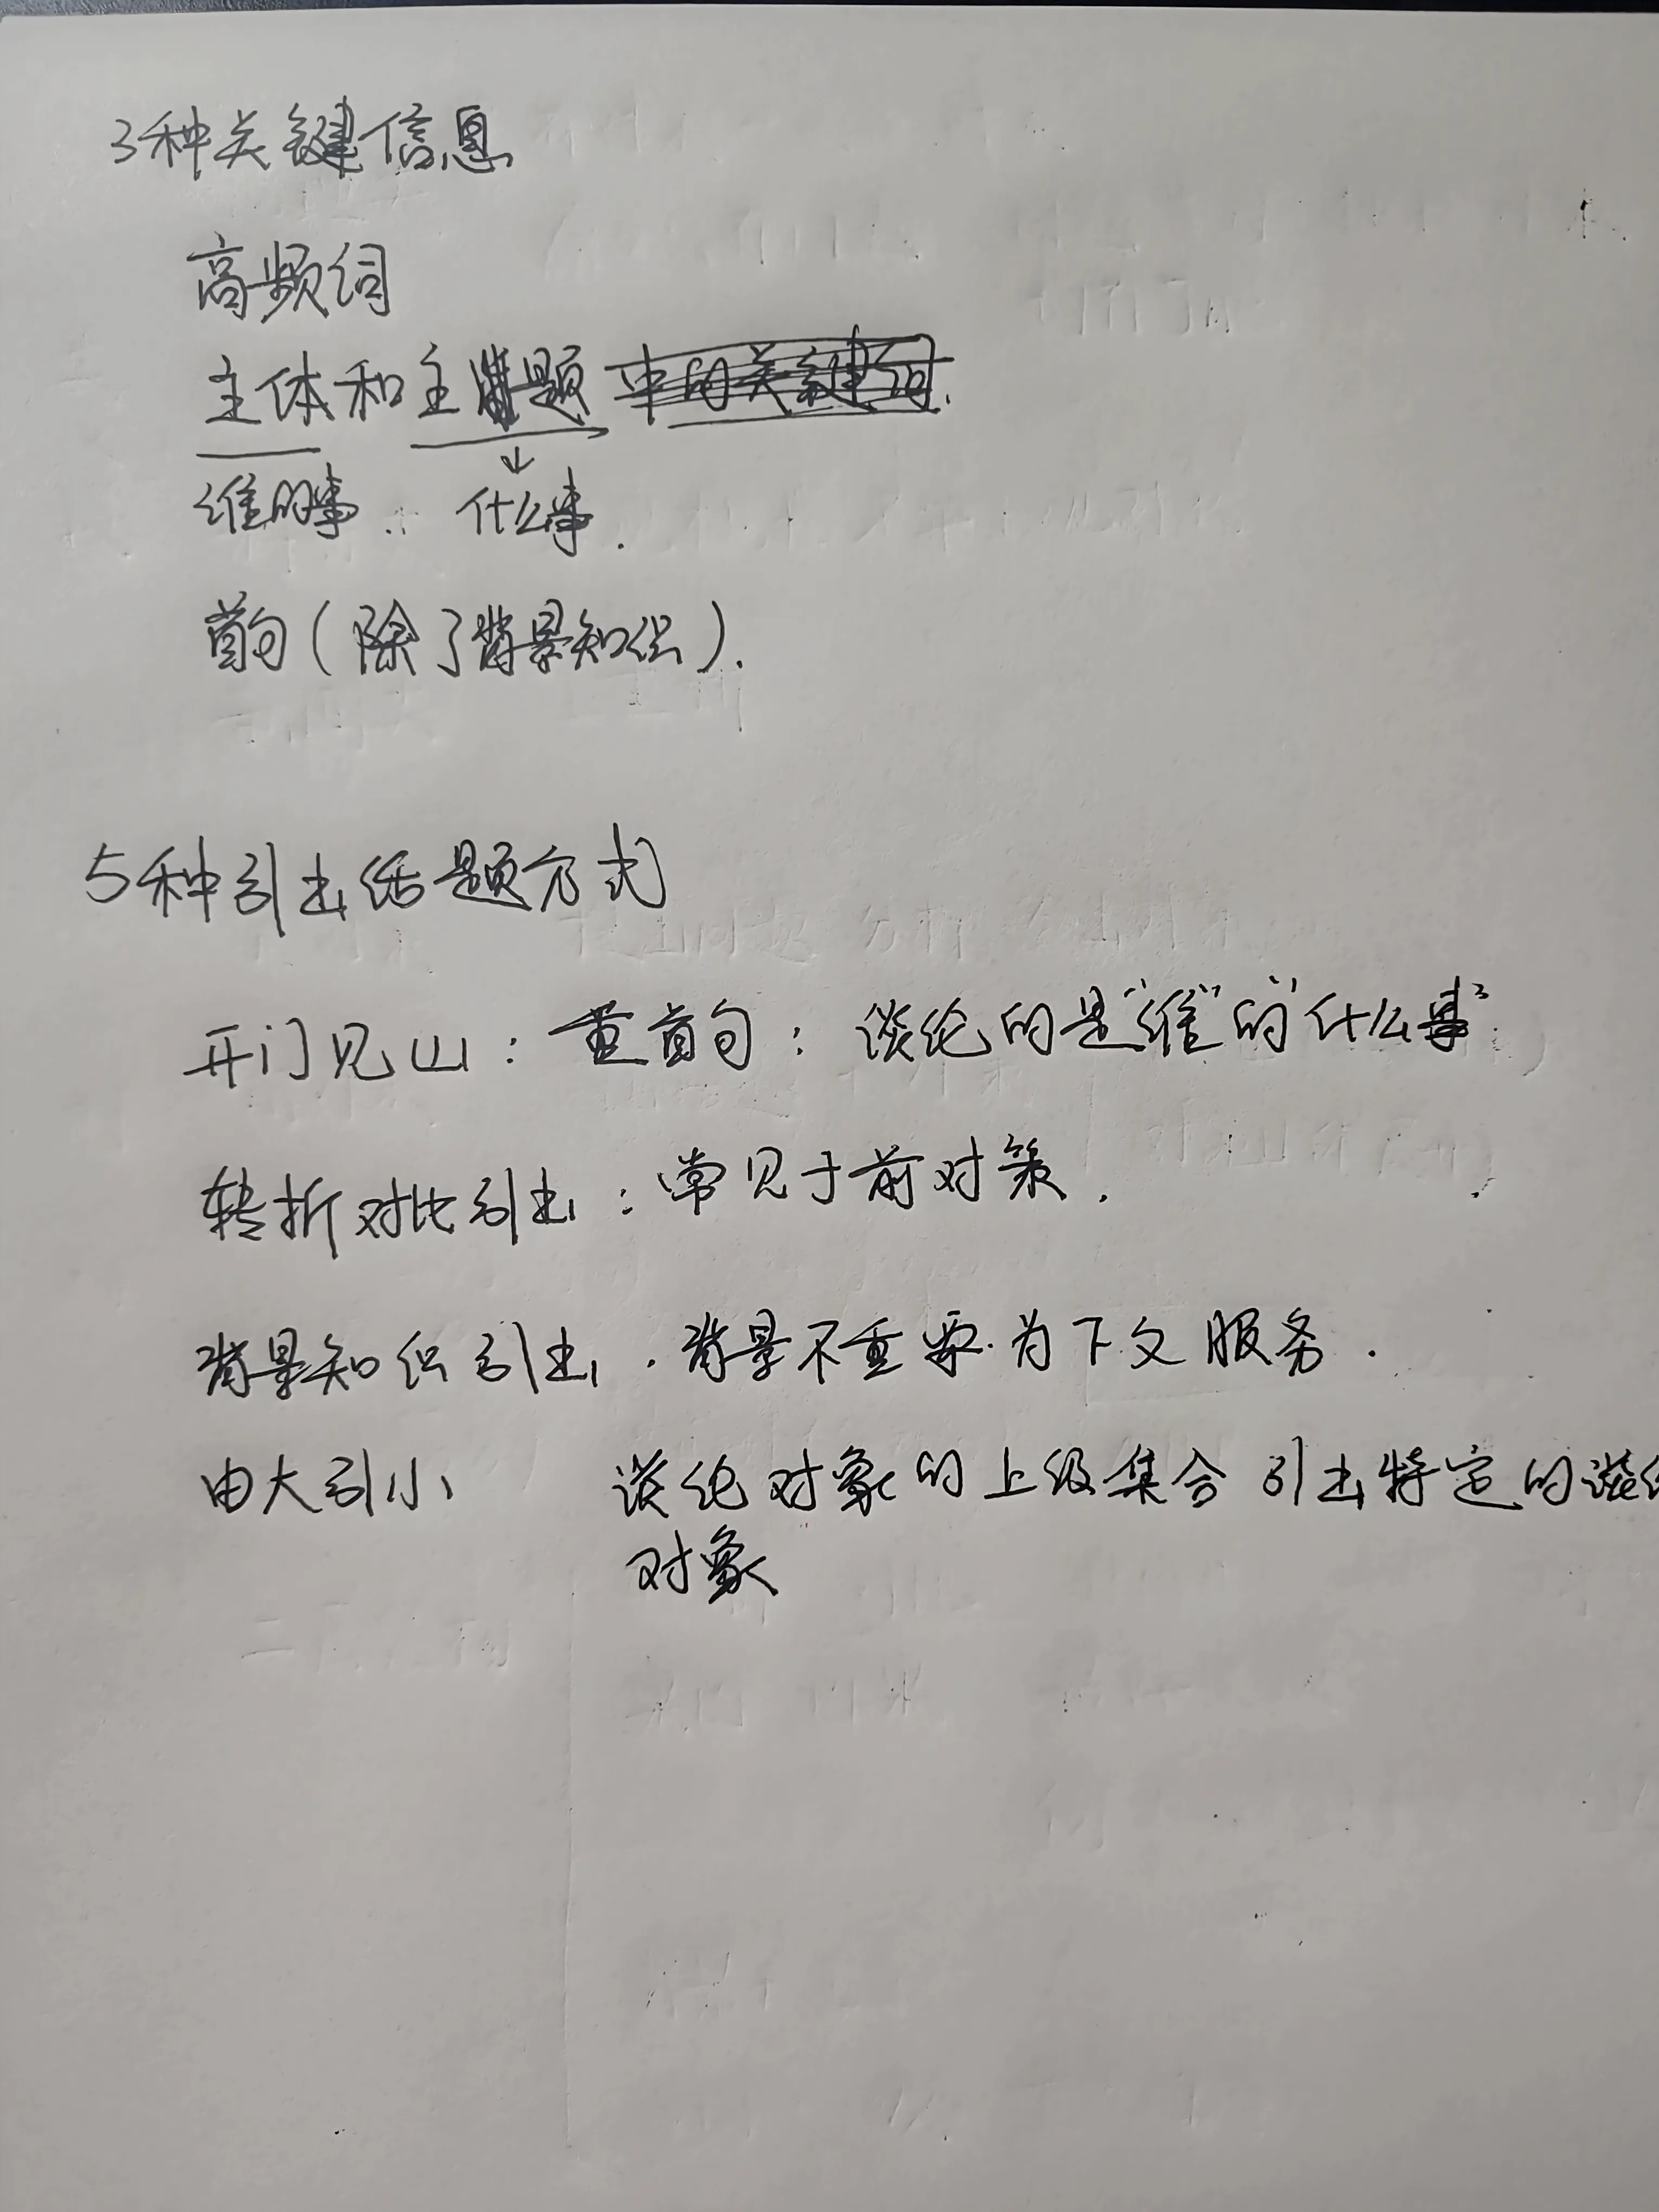 3种关键信息
高频词
主体和主题
谁的事. 什么事.
首句(除了背景知识).
5种引出话题方式
开门见山:重首句:谈论的是"谁"的"什么事"
转折对比引出:常见于前对策.
背景知识引出.背景不重要.为下文服务.
由大引小 谈论对象的上级集合 引出特定的谈论
对象